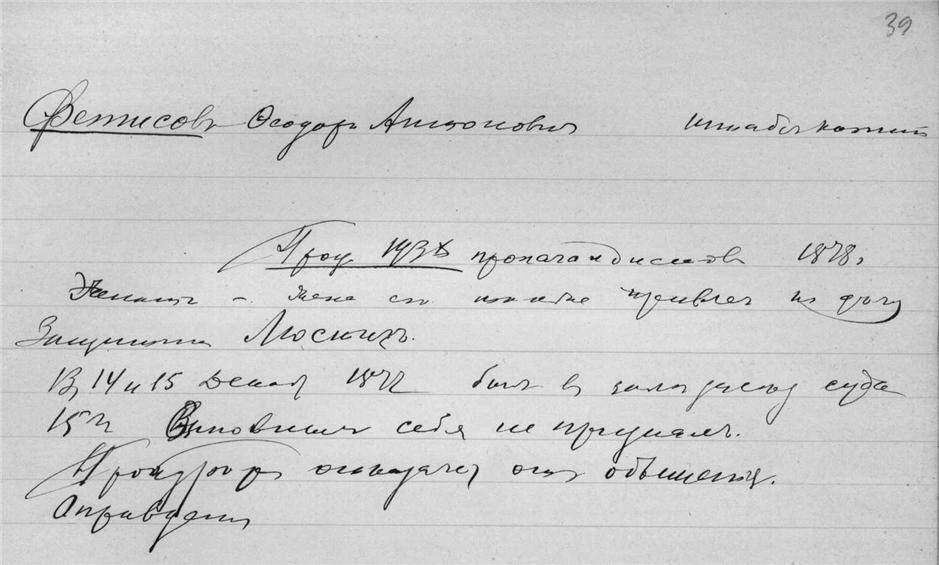 39
Фетисовъ Ѳеодоръ Антоновичъ штабсъ-капит
Проц. 193хъ пропагандистовъ 1878.
Женатъ – жена его также привлеч. къ дѣлу
Защитникъ
В 14 и 15 Декаб 1877 былъ в суда
15го Виновнымъ себя не призналъ.
Прокуроръ отказался отъ обвиненія.
Оправданъ